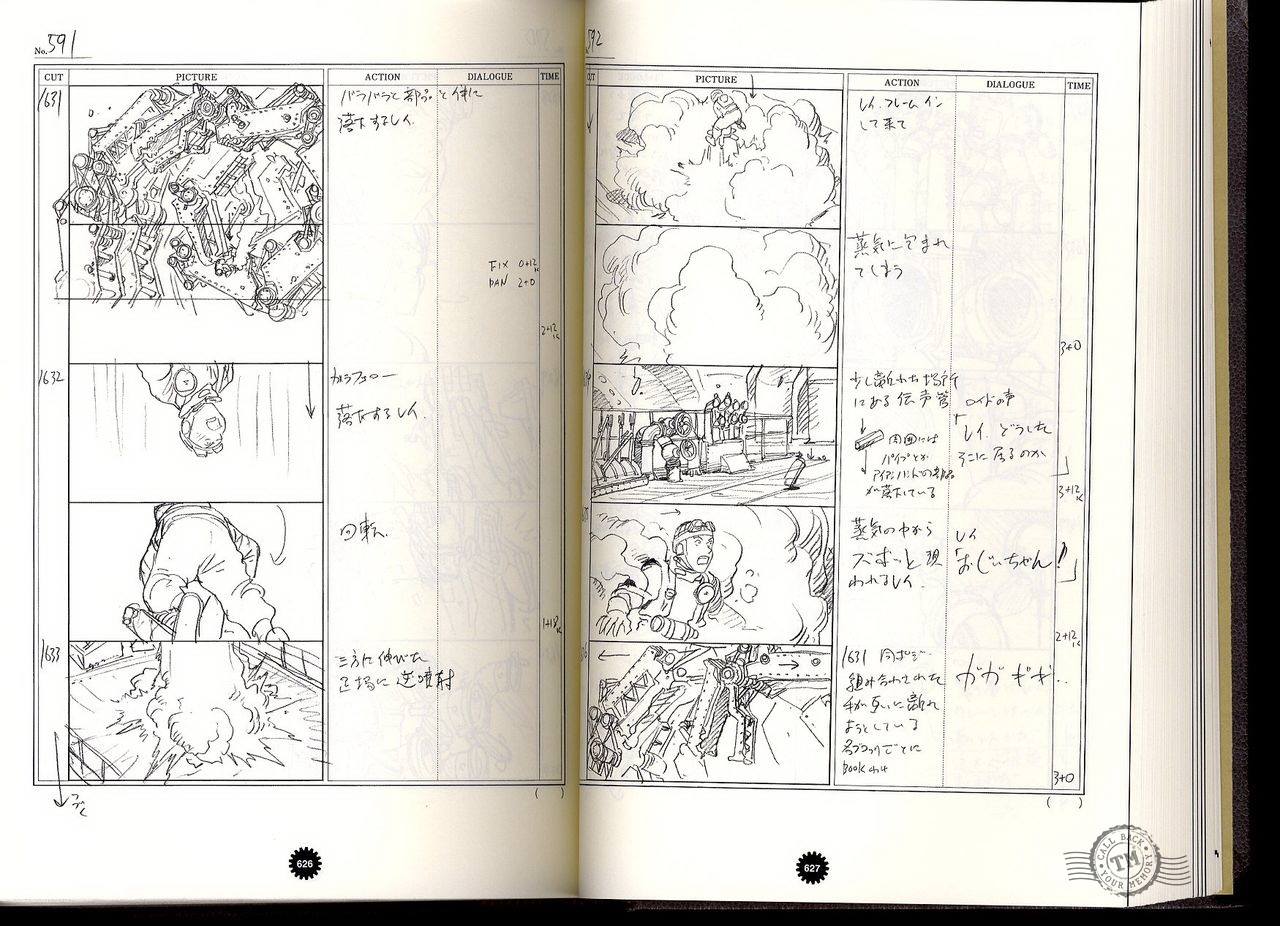 No. 591
CUT PICTURE ACTION DIALOGUE TIME
1631
バラバラと部品と供に
落下するレイ.
FIX 0+12K
PAN 2+0
2+12K
1632
カメラフォロー
落下するレイ.
回転.
1+18K
1633
三方に伸びた
足場に逆噴射
つづく
( )
626
592
CUT PICTURE ACTION DIALOGUE TIME
レイ.フレームイン
して来て
蒸気に包まれ
てしまう
3+0
少し離れた場所
にある伝声管
周囲には
パイプとか
が落下している
ロイドの声
「レイ.どうした
そこに居るのか」
3+12K
蒸気の中から
ズボッと現
われるレイ.
レイ
「おじいちゃん!」
2+12K
1631 同ポジ
組み合わされた
手が互いに離れ
ようとしている
各ブロックごとに
BOOK
ガガギギ…
3+0
( )
627
CALL BACK
TM
YOUR MEMORY